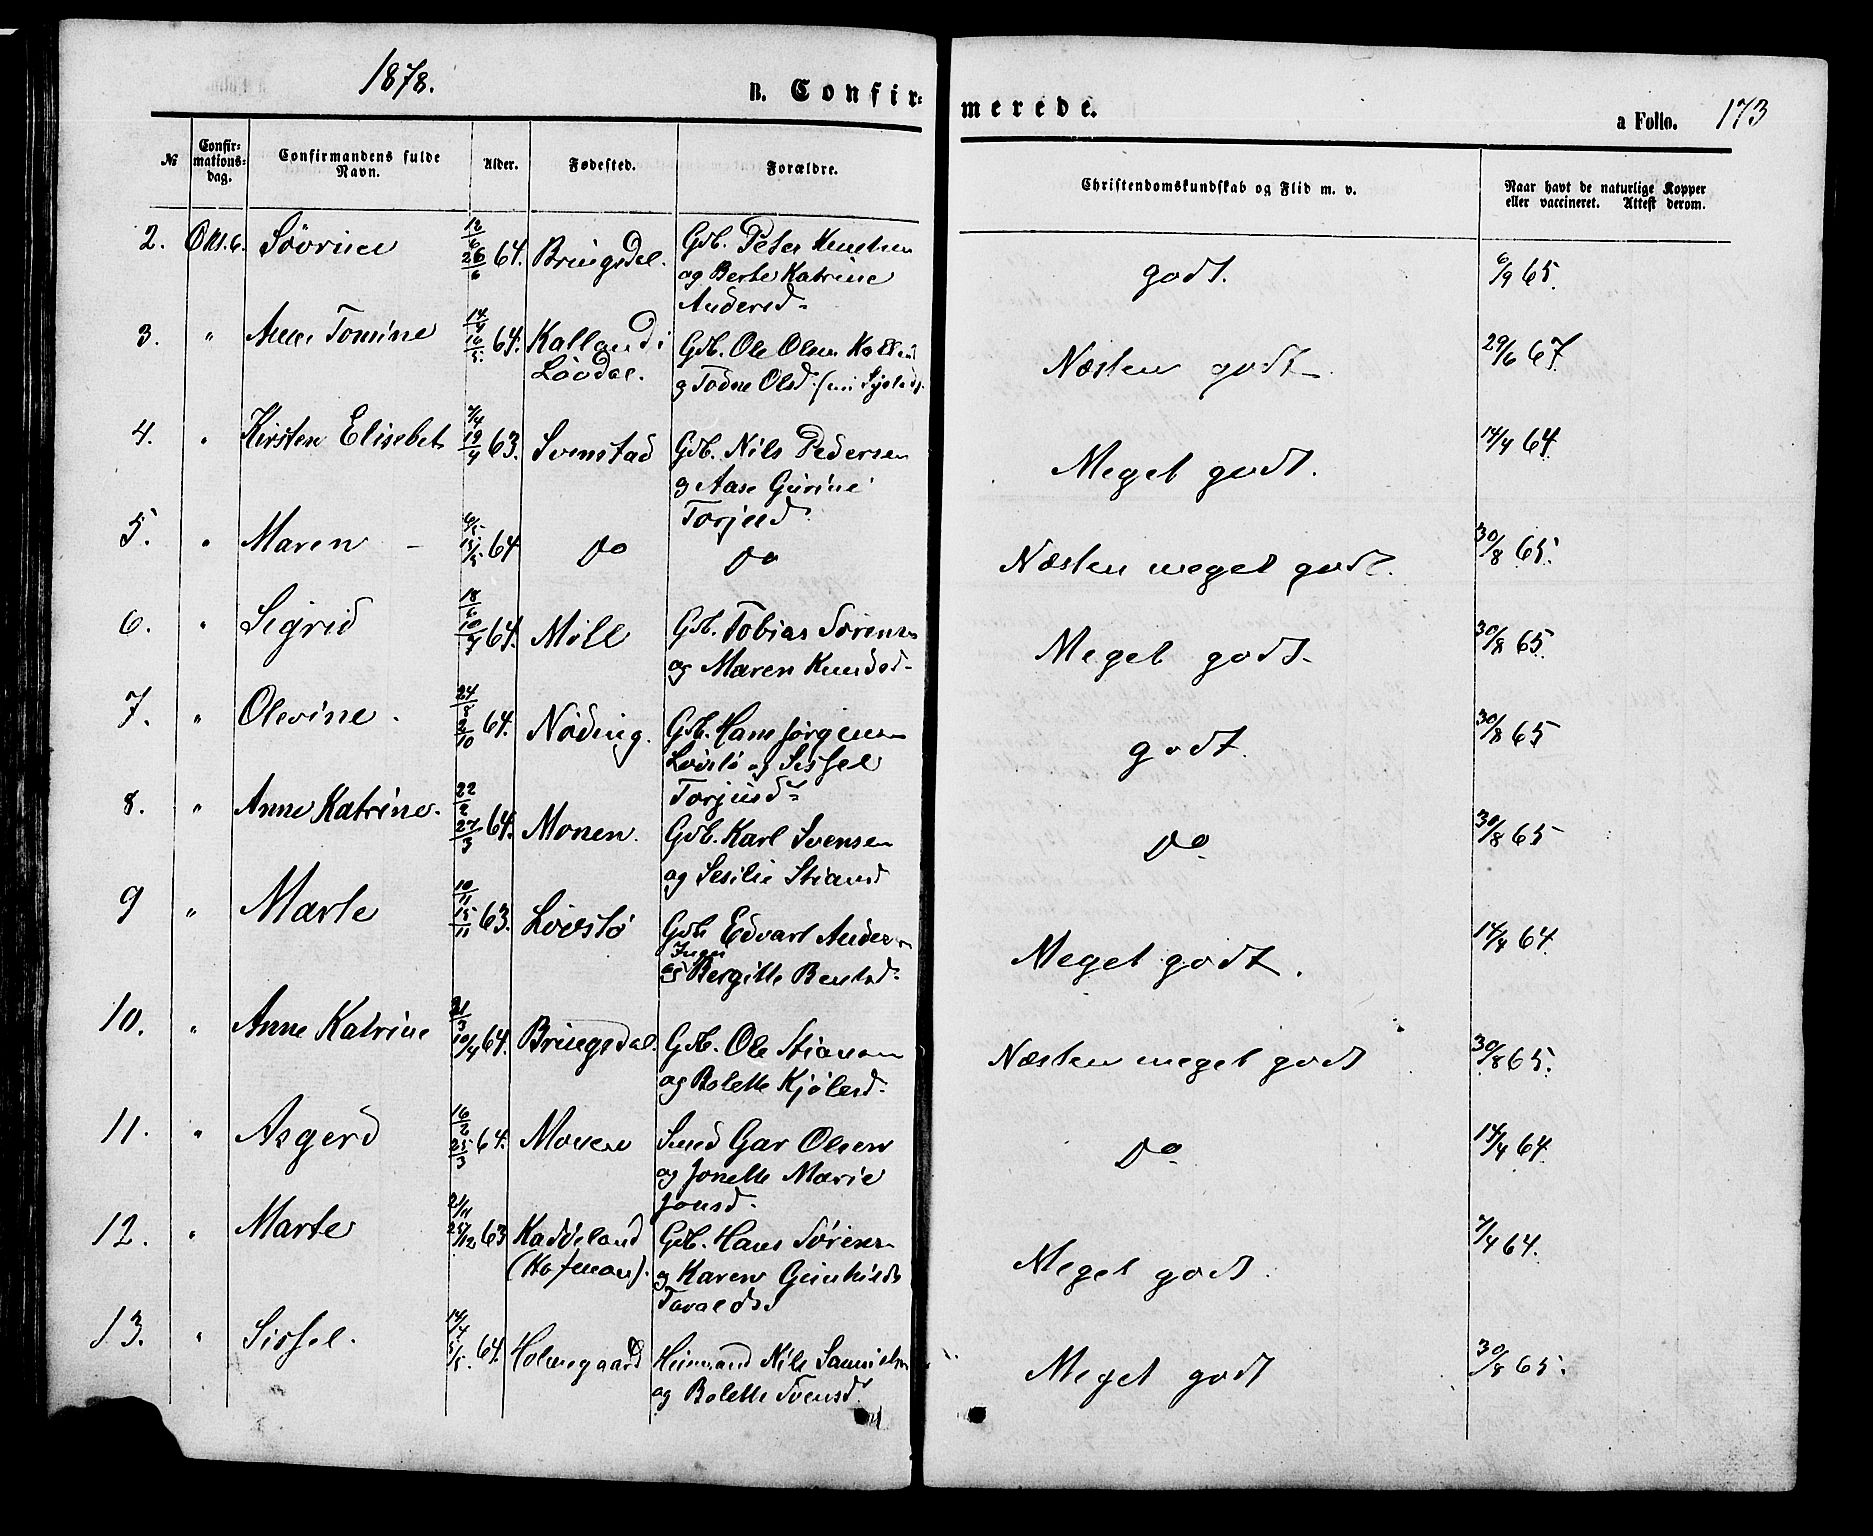 1878.
B. Confirmerede.
a Follo. 173
№ Confirmationsdag. Confirmandens fulde Navn. Alder. Fødested. Forældre. Christendomskundskab og Flid m. v. Naar havt de naturlige Kopper eller vaccineret. Attest derom.
2. Okt. 6. Sövrine 12/6 26/6 64. Bringsdal. Gdb. Peter Knudsen godt. 6/9 65.
og Berte Katrine
Andersd.
3. " Ane Tomine 14/4 16/5 64. Kalland i Gdb. Ole Olsen Næsten godt. 29/6 67.
Lövdal. og Todne Olsd.
4. " Kirsten Elisebet 19/4 63. Svenstad Gdb. Nils Pedersen Meget godt. 14/4 64
og Aase Gurine
Torjusd.
5. " Maren 15/5 64 do do Næsten meget godt. 30/8 65.
6. " Sigrid 18/6 10/7 64. Möll Gdb. Tobias Sörensen Meget godt. 30/8 65.
og Maren Knudsd.
7. " Olevine. 24/8 2/10 64. Nöding. Gdb. Hans Jörgensen godt. 30/8 65
Lövslö og Sissel
Torjusd.
8. " Anne Katrine. 22/2 27/3 64. Monen. Gdb. Karl Svensen do. 30/8 65
og Sesilie Stiansd
9 " Marte 10/11 15/11 63. Lövslö Gdb Edvart Anders Meget godt. 14/4 64.
og Inger Bergitte Bentsd.
10. " Anne Katrine 21/3 10/4 64. Bringsdal. Gdb. Ole Stiansen Næsten meget godt 30/8 65.
og Bolette Kjölesd.
11. " Asgerd 16/2 25/3 64. Monen Smed Gar Olsen do 14/4 64.
og Jonette Marie
Jonsd.
12. " Marte 21/11 25/12 63 Kaddeland Gdb. Hans Sörens Meget godt. 7/4 64.
og Karen Gunhilde
Tavaldsd
13. " Sissel. 14/4 5/5. 64. Holmegaard Nils Samuelsen Meget godt 30/8 65.
og Bolette Svensd.